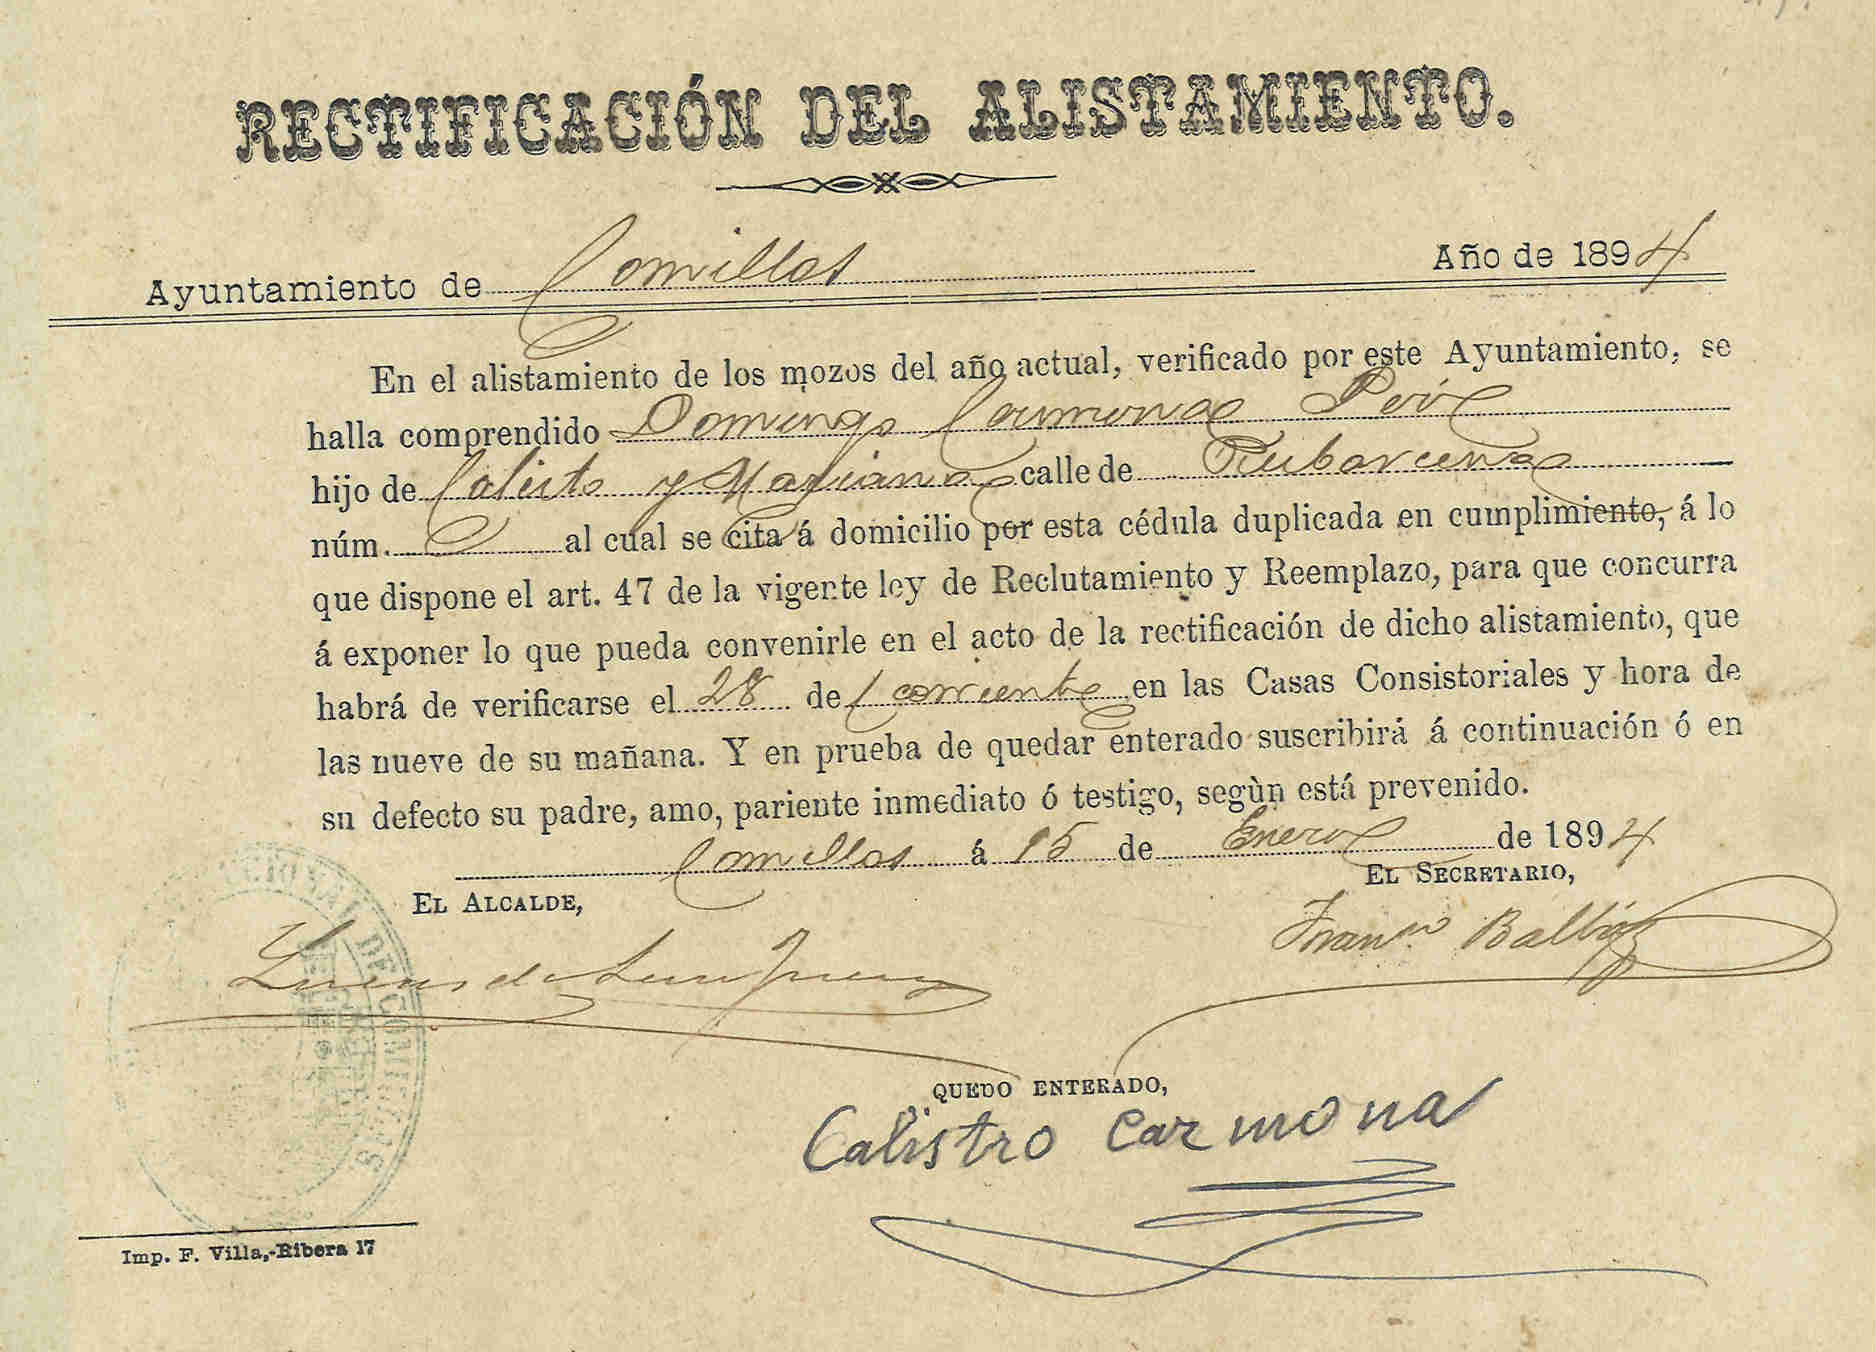 RECTIFICACIÓN DEL ALISTAMIENTO.
Ayuntamiento de Comillas Año de 1894
En el alistamiento de los mozos del año actual, verificado por este Ayuntamiento, se
halla comprendido Domingo Carmona
hijo de Calisto y Mariana calle de Rubarcena
núm. al cual se cita á domicilio por esta cédula duplicada en cumplimiento, á lo
que dispone el art. 47 de la vigente ley de Reclutamiento y Reemplazo, para que concurra
á exponer lo que pueda convenirle en el acto de la rectificación de dicho alistamiento, que
habrá de verificarse el 28 de corriente en las Casas Consistoriales y hora de
las nueve de su mañana. Y en prueba de quedar enterado suscribirá á continuación ó en
su defecto su padre, amo, pariente inmediato ó testigo, segùn está prevenido.
Comillas á 15 de Enero de 1894
EL ALCALDE,
EL SECRETARIO,
Franco. Balbás
DE COMILLAS
QUEDO ENTERADO,
Calistro Carmona
Imp. F. Villa,-Ribera 17